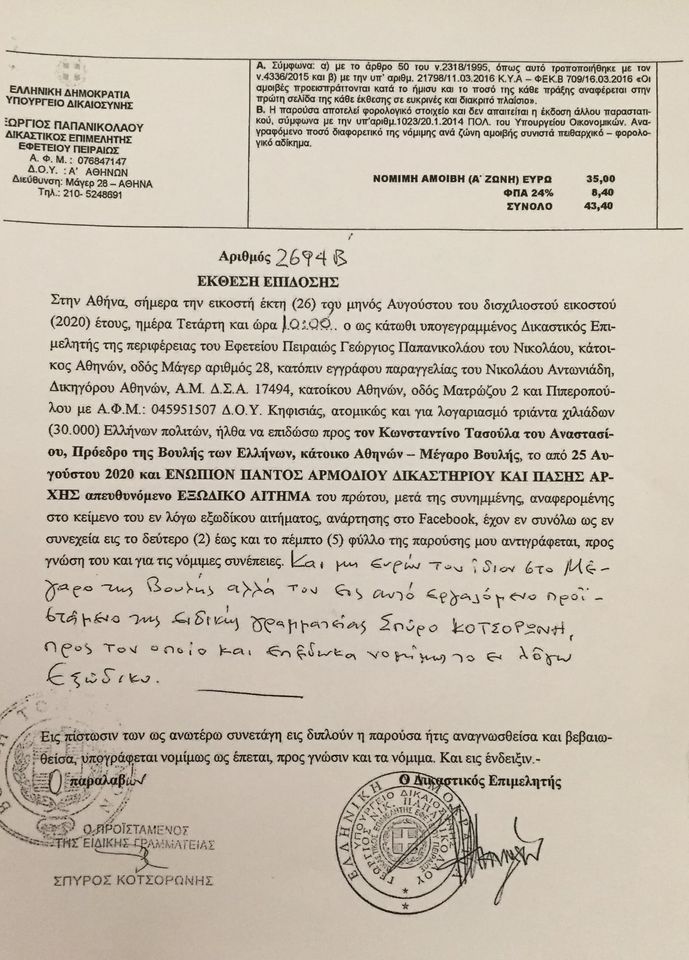 ΕΛΛΗΝΙΚΗ ΔΗΜΟΚΡΑΤΙΑ
ΥΠΟΥΡΓΕΙΟ ΔΙΚΑΙΟΣΥΝΗΣ
ΞΩΡΓΙΟΣ ΠΑΠΑΝΙΚΟΛΑΟΥ
ΔΙΚΑΣΤΙΚΟΣ ΕΠΙΜΕΛΗΤΗΣ
ΕΦΕΤΕΙΟΥ ΠΕΙΡΑΙΩΣ
Α. Φ. Μ. : 076847147
Δ.Ο.Υ. : Α' ΑΘΗΝΩΝ
Διεύθυνση: Μάγερ 28 – ΑΘΗΝΑ
Τηλ.: 210- 5248691
Α. Σύμφωνα: α) με το άρθρο 50 του ν.2318/1995, όπως αυτό τροποποιήθηκε με τον
ν.4336/2015 και β) με την υπ' αριθμ. 21798/11.03.2016 Κ.Υ.Α – ΦΕΚ.Β 709/16.03.2016 «Οι
αμοιβές προεισπράττονται κατά το ήμισυ και το ποσό της κάθε πράξης αναφέρεται στην
πρώτη σελίδα της κάθε έκθεσης σε ευκρινές και διακριτό πλαίσιο».
Β. Η παρούσα αποτελεί φορολογικό στοιχείο και δεν απαιτείται η έκδοση άλλου παραστατι-
κού, σύμφωνα με την υπ'αριθμ.1023/20.1.2014 ΠΟΛ. του Υπουργείου Οικονομικών. Ανα-
γραφόμενο ποσό διαφορετικό της νόμιμης ανά ζώνη αμοιβής συνιστά πειθαρχικό – φορολο-
γικό αδίκημα.
ΝΟΜΙΜΗ ΑΜΟΙΒΗ (Α΄ ΖΩΝΗ) ΕΥΡΩ 35,00
ΦΠΑ 24% 8,40
ΣΥΝΟΛΟ 43,40
Αριθμός 2694 Β
ΕΚΘΕΣΗ ΕΠΙΔΟΣΗΣ
Στην Αθήνα, σήμερα την εικοστή έκτη (26) του μηνός Αυγούστου του δισχιλιοστού εικοστού
(2020) έτους, ημέρα Τετάρτη και ώρα 10:00.. ο ως κάτωθι υπογεγραμμένος Δικαστικός Επι-
μελητής της περιφέρειας του Εφετείου Πειραιώς Γεώργιος Παπανικολάου του Νικολάου, κάτοι-
κος Αθηνών, οδός Μάγερ αριθμός 28, κατόπιν εγγράφου παραγγελίας του Νικολάου Αντωνιάδη,
Δικηγόρου Αθηνών, Α.Μ. Δ.Σ.Α. 17494, κατοίκου Αθηνών, οδός Ματρώζου 2 και Πιπεροπού-
λου με Α.Φ.Μ.: 045951507 Δ.Ο.Υ. Κηφισιάς, ατομικώς και για λογαριασμό τριάντα χιλιάδων
(30.000) Ελλήνων πολιτών, ήλθα να επιδώσω προς τον Κωνσταντίνο Τασούλα του Αναστασί-
ου, Πρόεδρο της Βουλής των Ελλήνων, κάτοικο Αθηνών – Μέγαρο Βουλής, το από 25 Αυ-
γούστου 2020 και ΕΝΩΠΙΟΝ ΠΑΝΤΟΣ ΑΡΜΟΔΙΟΥ ΔΙΚΑΣΤΗΡΙΟΥ ΚΑΙ ΠΑΣΗΣ ΑΡ-
ΧΗΣ απευθυνόμενο ΕΞΩΔΙΚΟ ΑΙΤΗΜΑ του πρώτου, μετά της συνημμένης, αναφερομένης
στο κείμενο του εν λόγω εξωδίκου αιτήματος, ανάρτησης στο Facebook, έχον εν συνόλω ως εν
συνεχεία εις το δεύτερο (2) έως και το πέμπτο (5) φύλλο της παρούσης μου αντιγράφεται, προς
γνώση του και για τις νόμιμες συνέπειες. Και μη ευρών τον ίδιον στο Μέ-
γαρο της Βουλής αλλά τον εις αυτό εργαζόμενο προϊ-
στάμενο της ειδικής γραμματείας Σπύρο ΚΟΤΣΟΡΩΝΗ,
προς τον οποίο και επέδωκα νομίμως το εν λόγω
Εξώδικο.
Εις πίστωσιν των ως ανωτέρω συνετάγη εις διπλούν η παρούσα ήτις αναγνωσθείσα και βεβαιω-
θείσα, υπογράφεται νομίμως ως έπεται, προς γνώσιν και τα νόμιμα. Και εις ένδειξιν.-
Ο παραλαβών Ο Δικαστικός Επιμελητής
Ο ΠΡΟΪΣΤΑΜΕΝΟΣ
ΤΗΣ ΕΙΔΙΚΗΣ ΓΡΑΜΜΑΤΕΙΑΣ
ΣΠΥΡΟΣ ΚΟΤΣΟΡΩΝΗΣ
ΕΛΛΗΝΙΚΗ ΔΗΜΟΚΡΑΤΙΑ
ΥΠΟΥΡΓΕΙΟ ΔΙΚΑΙΟΣΥΝΗΣ